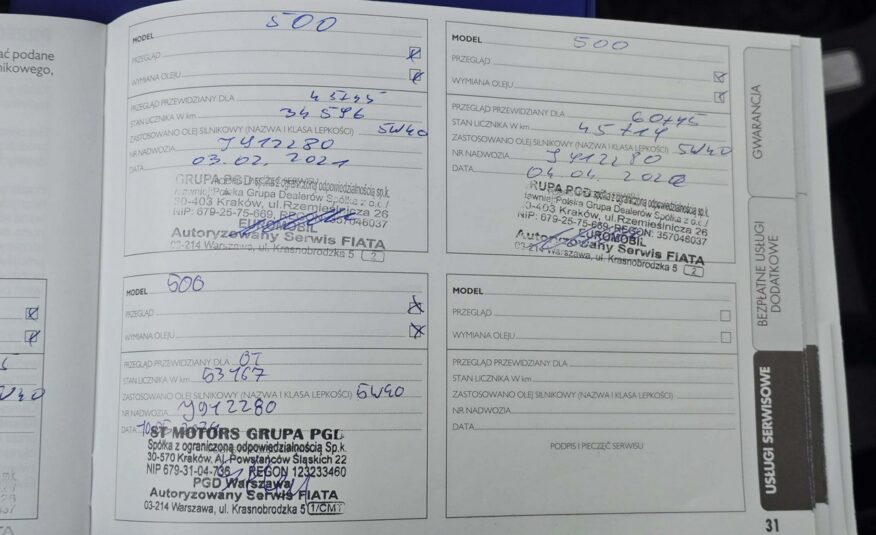 ać podane
nikowego,
MODEL 500
PRZEGLĄD
WYMIANA OLEJU
PRZEGLĄD PRZEWIDZIANY DLA 45T45
STAN LICZNIKA W km 34 596
ZASTOSOWANO OLEJ SILNIKOWY (NAZWA I KLASA LEPKOŚCI) 5W40
NR NADWOZIA J912280
DATA 03.02. 2021
GRUPA PGD spółka z ograniczoną odpowiedzialnością sp.k.
(dawniej: Polska Grupa Dealerów Spółka z o.o.)
30-403 Kraków, ul. Rzemieślnicza 26
NIP: 679-25-75-669, REGON: 357046037
EUROMOBIL
Autoryzowany Serwis FIATA
03-214 Warszawa, ul. Krasnobrodzka 5 2
MODEL 500
PRZEGLĄD
WYMIANA OLEJU
PRZEGLĄD PRZEWIDZIANY DLA 60T45
STAN LICZNIKA W km 45714
ZASTOSOWANO OLEJ SILNIKOWY (NAZWA I KLASA LEPKOŚCI) 5W40
NR NADWOZIA J912280
DATA 04.04. 202
RUPA PGD spółka z ograniczoną odpowiedzialnością sp.k.
awniej: Polska Grupa Dealerów Spółka z o.o.)
0-403 Kraków, ul. Rzemieślnicza 26
NIP: 679-25-75-669, REGON: 357046037
EUROMOBIL
Autoryzowany Serwis FIATA
03-214 Warszawa, ul. Krasnobrodzka 5 2
MODEL 500
PRZEGLĄD
WYMIANA OLEJU
PRZEGLĄD PRZEWIDZIANY DLA OT
STAN LICZNIKA W km 53167
ZASTOSOWANO OLEJ SILNIKOWY (NAZWA I KLASA LEPKOŚCI) 5W40
NR NADWOZIA J912280
DATA
ST MOTORS GRUPA PGD
Spółka z ograniczoną odpowiedzialnością Sp.k.
30-570 Kraków, Al. Powstańców Śląskich 22
NIP 679-31-04-736 REGON 123233460
PGD Warszawa
Autoryzowany Serwis FIATA
03-214 Warszawa, ul. Krasnobrodzka 5 1/CM
MODEL
PRZEGLĄD
WYMIANA OLEJU
PRZEGLĄD PRZEWIDZIANY DLA
STAN LICZNIKA W km
ZASTOSOWANO OLEJ SILNIKOWY (NAZWA I KLASA LEPKOŚCI)
NR NADWOZIA
DATA
PODPIS I PIECZĘĆ SERWISU
GWARANCJA
BEZPŁATNE USŁUGI
DODATKOWE
USŁUGI SERWISOWE
31